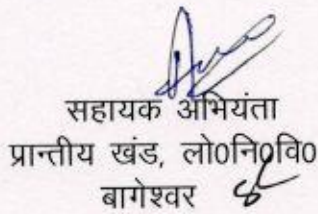 सहायक अभियंता
प्रान्तीय खंड, लो0नि0वि0
बागेश्वर